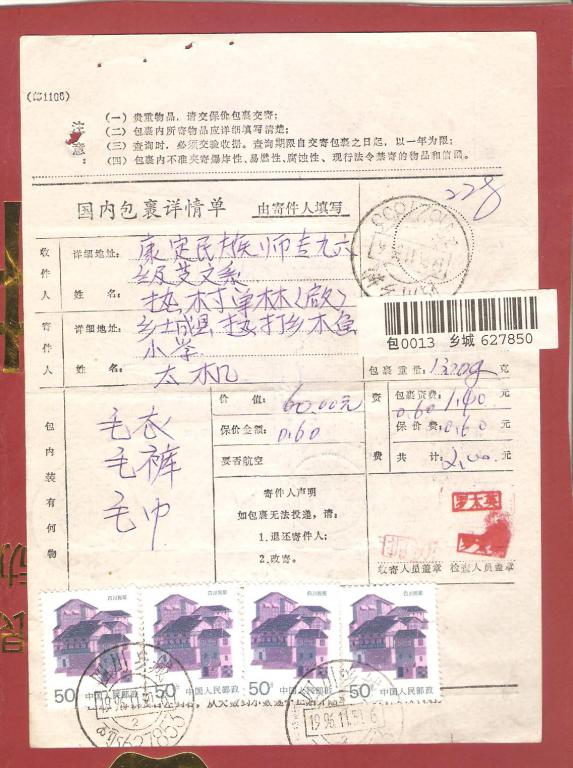 (邮1105)
注意:
(一) 贵重物品,请交保价包裹交寄;
(二) 包裹内所寄物品应详细填写清楚;
(三) 查询时,必须交验收据。查询期限自交寄包裹之日起,以一年为限;
(四) 包裹内不准夹寄爆炸性、易燃性、腐蚀性、现行法令禁寄的物品和信函。
国内包裹详情单 由寄件人填写
228
收件人 详细地址: 康定民族师专九六
级艺文系
姓 名:
寄件人 详细地址:
小学
姓 名: 太机
包0013 乡城 627850
包裹重量: 1320g 克
包内装有何物
毛衣
毛裤
毛巾
价 值: 60.00元
保价金额: 0.60
要否航空
资费
包裹资费: 1.40 元
0.60
保价费: 0.60 元
共 计: 2.00 元
寄件人声明
如包裹无法投递,请:
1.退还寄件人;
2.改寄。
罗太英
罗太英
收寄人员盖章 检查人员盖章
四川民居
四川民居
四川民居
四川民居
50分 中国人民邮政
50分 中国人民邮政
50分 中国人民邮政
50分 中国人民邮政
四川乡城
1996.11.30
2
627853
1996.11.30.6